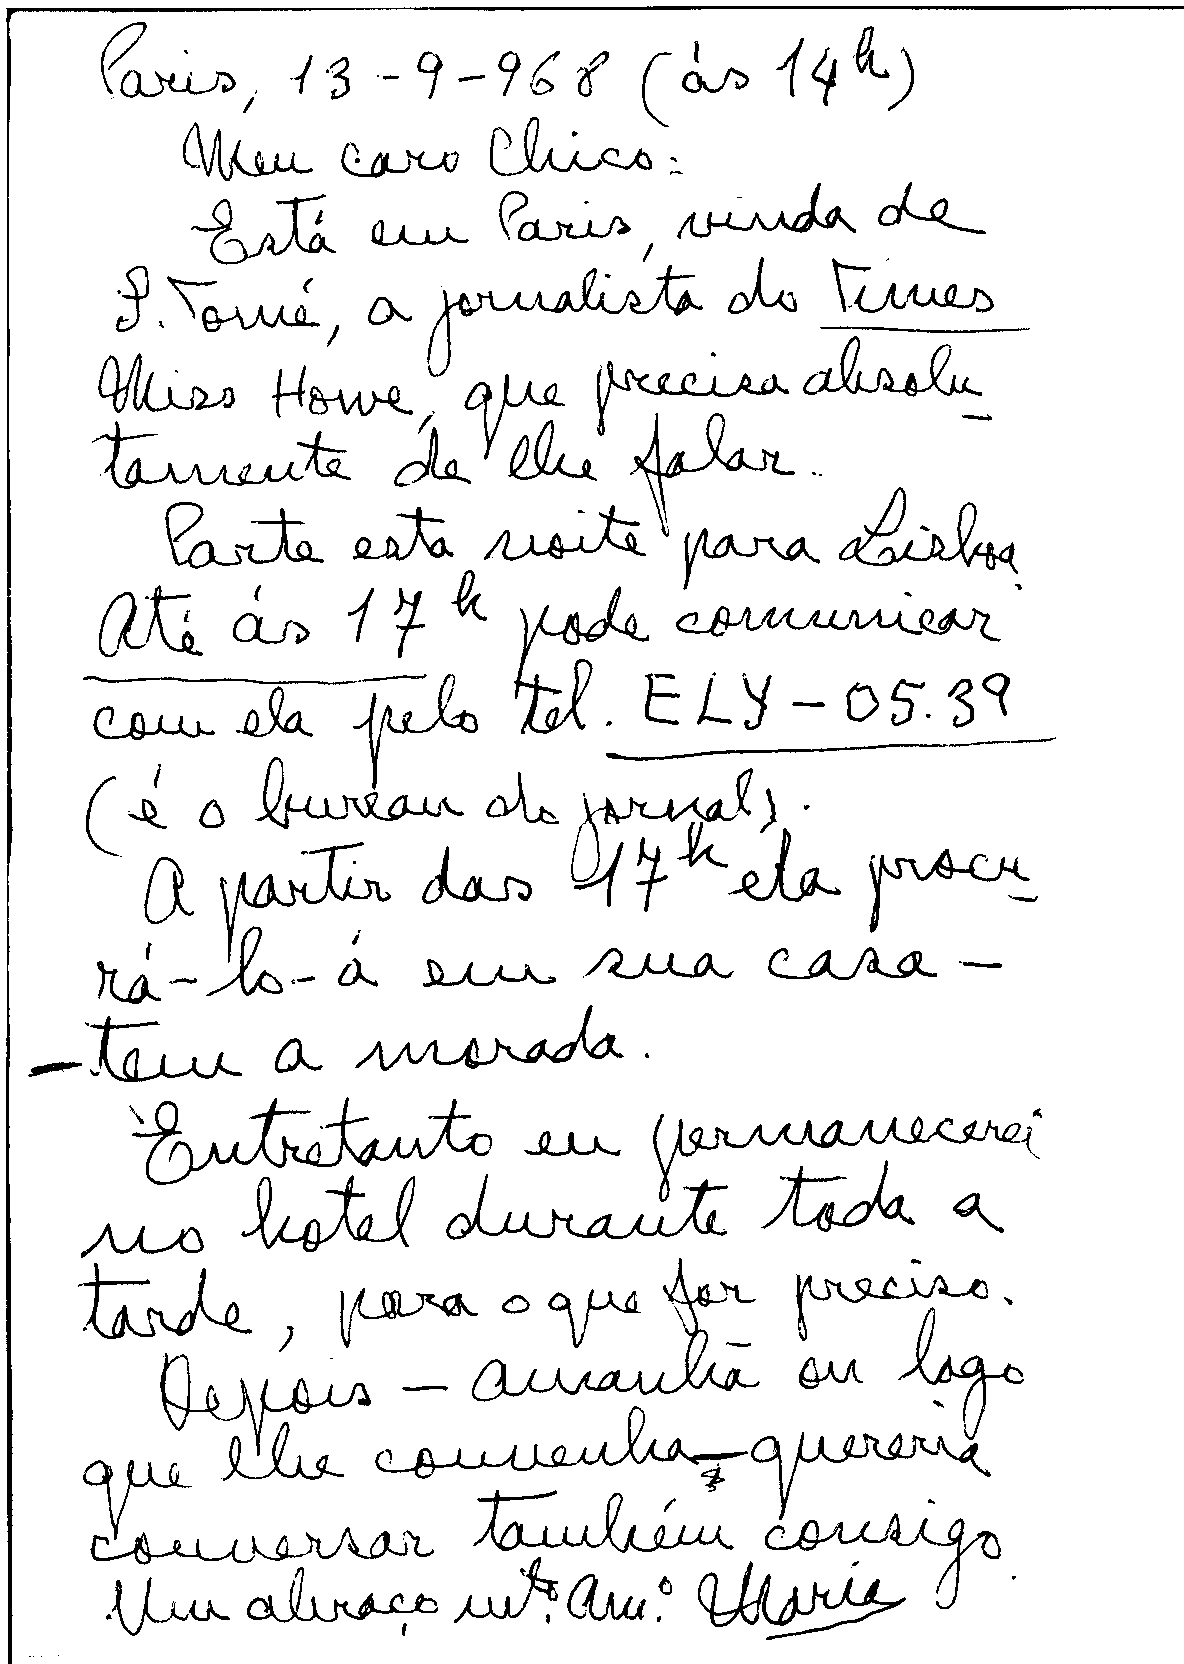 Paris, 13-9-968 (ás 14h)
Meu caro Chico:
Está em Paris, vinda de
S. Tomé, a jornalista do Times
Miss Howe, que precisa absolu-
tamente de lhe falar.
Parte esta noite para Lisboa.
Até ás 17h pode comunicar
com ela pelo tel. ELY-05.39
(é o bureau do jornal).
A partir das 17h ela procu-
rá-lo-á em sua casa -
- tem a morada.
Entretanto eu permanecerei
no hotel durante toda a
tarde, para o que for preciso.
Depois - amanhã ou logo
que lhe convenha - quereria
conversar também consigo.
Um abraço mto. am.o Maria